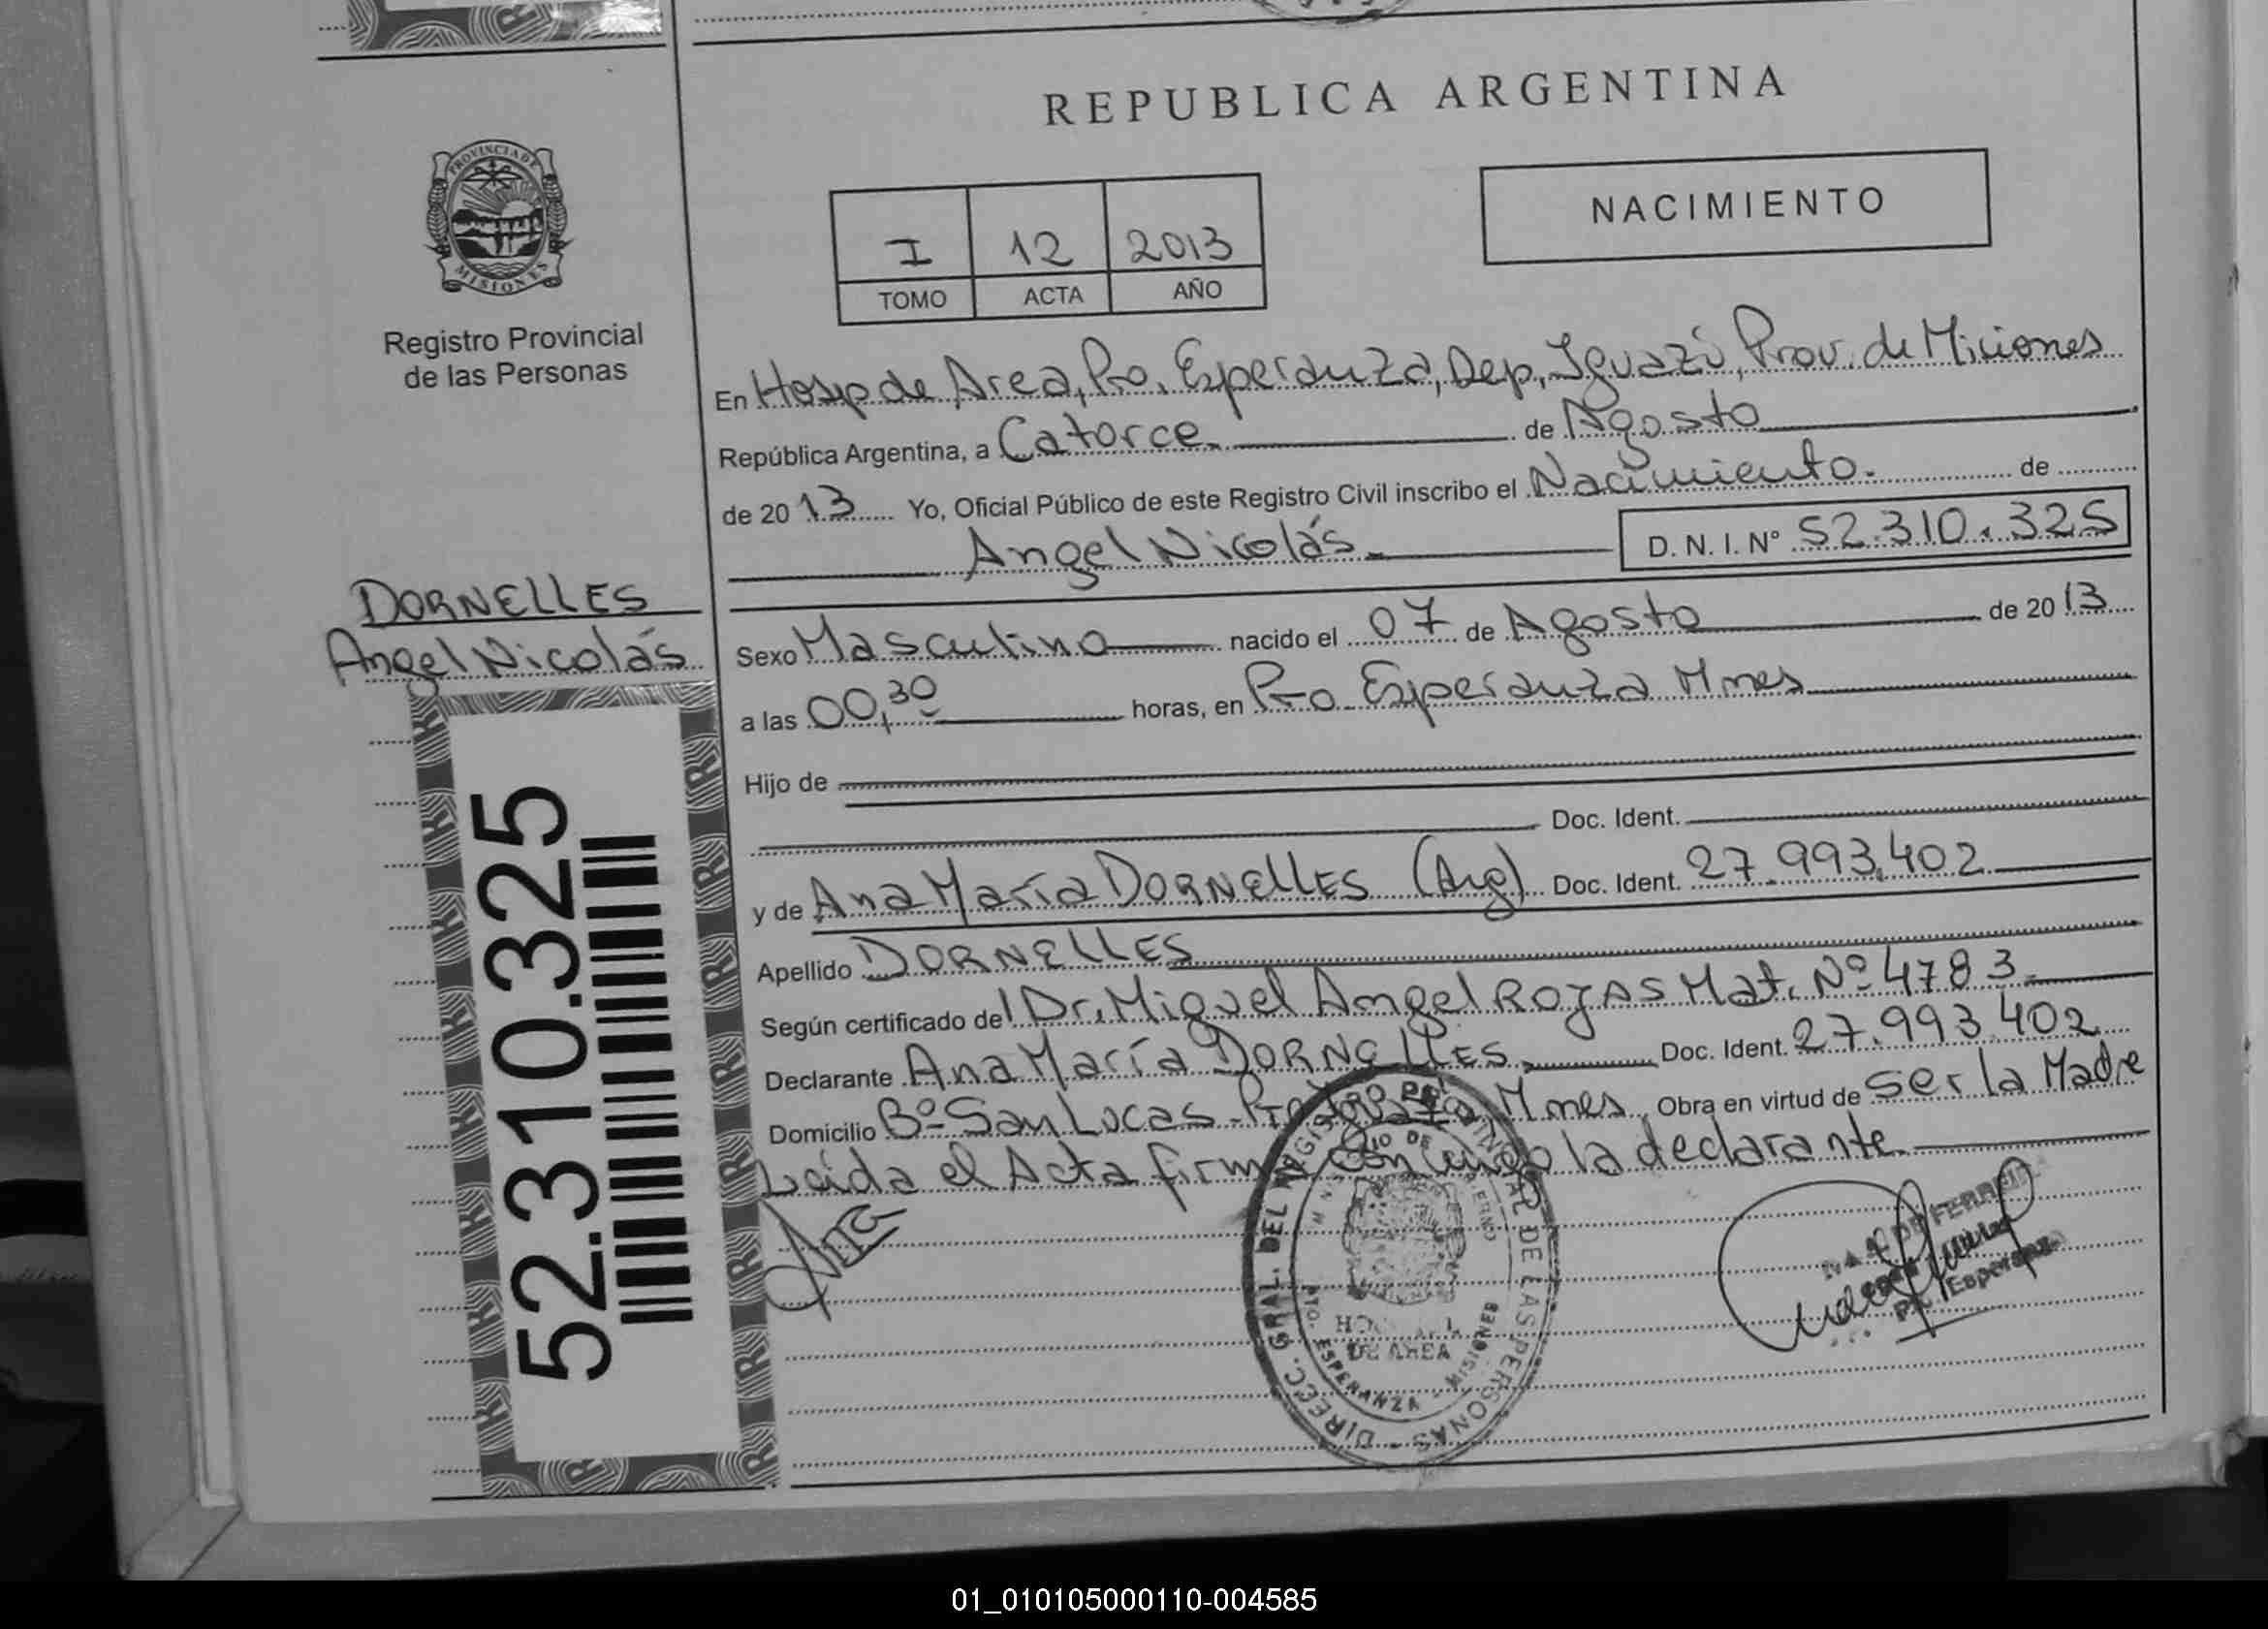 REPUBLICA ARGENTINA
PROVINCIA DE
MISIONES
Registro Provincial
de las Personas
NACIMIENTO
I 12 2013
TOMO ACTA AÑO
En Hosp de Area, Pto. Esperanza, Dep, Iguazú, Prov. de Miciones
República Argentina, a Catorce de Agosto
de 2013 Yo, Oficial Público de este Registro Civil inscribo el Nacimiento. de
Angel Nicolás D. N. I. Nº 52.310.325
DORNELLES
Angel Nicolás
Sexo Masculino nacido el 07 de Agosto de 2013
a las 00,30 horas, en Pto Esperanza Mnes
Hijo de
Doc. Ident.
y de Ana María DORNELLES (Arg) Doc. Ident. 27.993.402
Apellido DORNELLES
Según certificado del Dr. Miguel Angel ROJAS Mat. Nº 4783
Declarante Ana María DORNELLES Doc. Ident. 27.993.402
Domicilio Bº San Lucas - Pto Iguazú Mnes Obra en virtud de Ser la Madre
Leida el Acta firma conmigo la declarante.
Ana
52.310.325
DIRECC. GRAL. DEL REGISTRO PROVINCIAL DE LAS PERSONAS
HOSPITAL
DE AREA
PTO. ESPERANZA - MISIONES
Pto. Esperanza
01_010105000110-004585